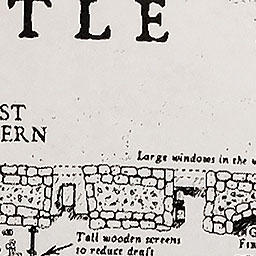 TLE
ST
ERN
Large windows in the w
Tall wooden screens
to reduce draft
G
FIR